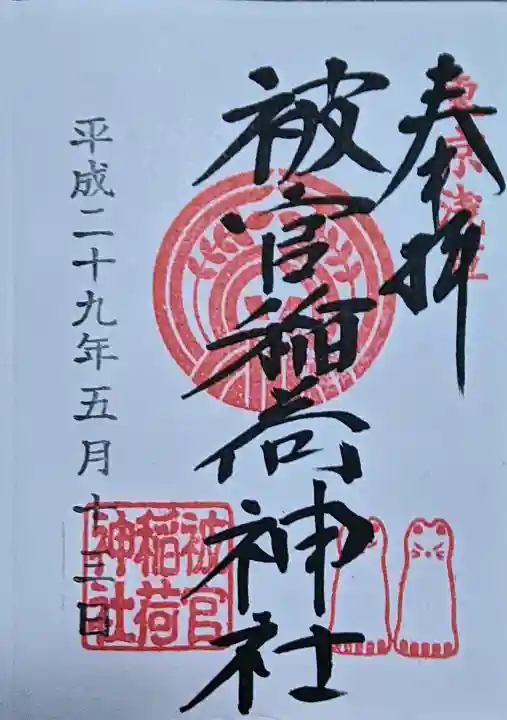 奉拝
東京浅草
被官稲荷神社
被官
稲荷
神社
平成二十九年五月十三日